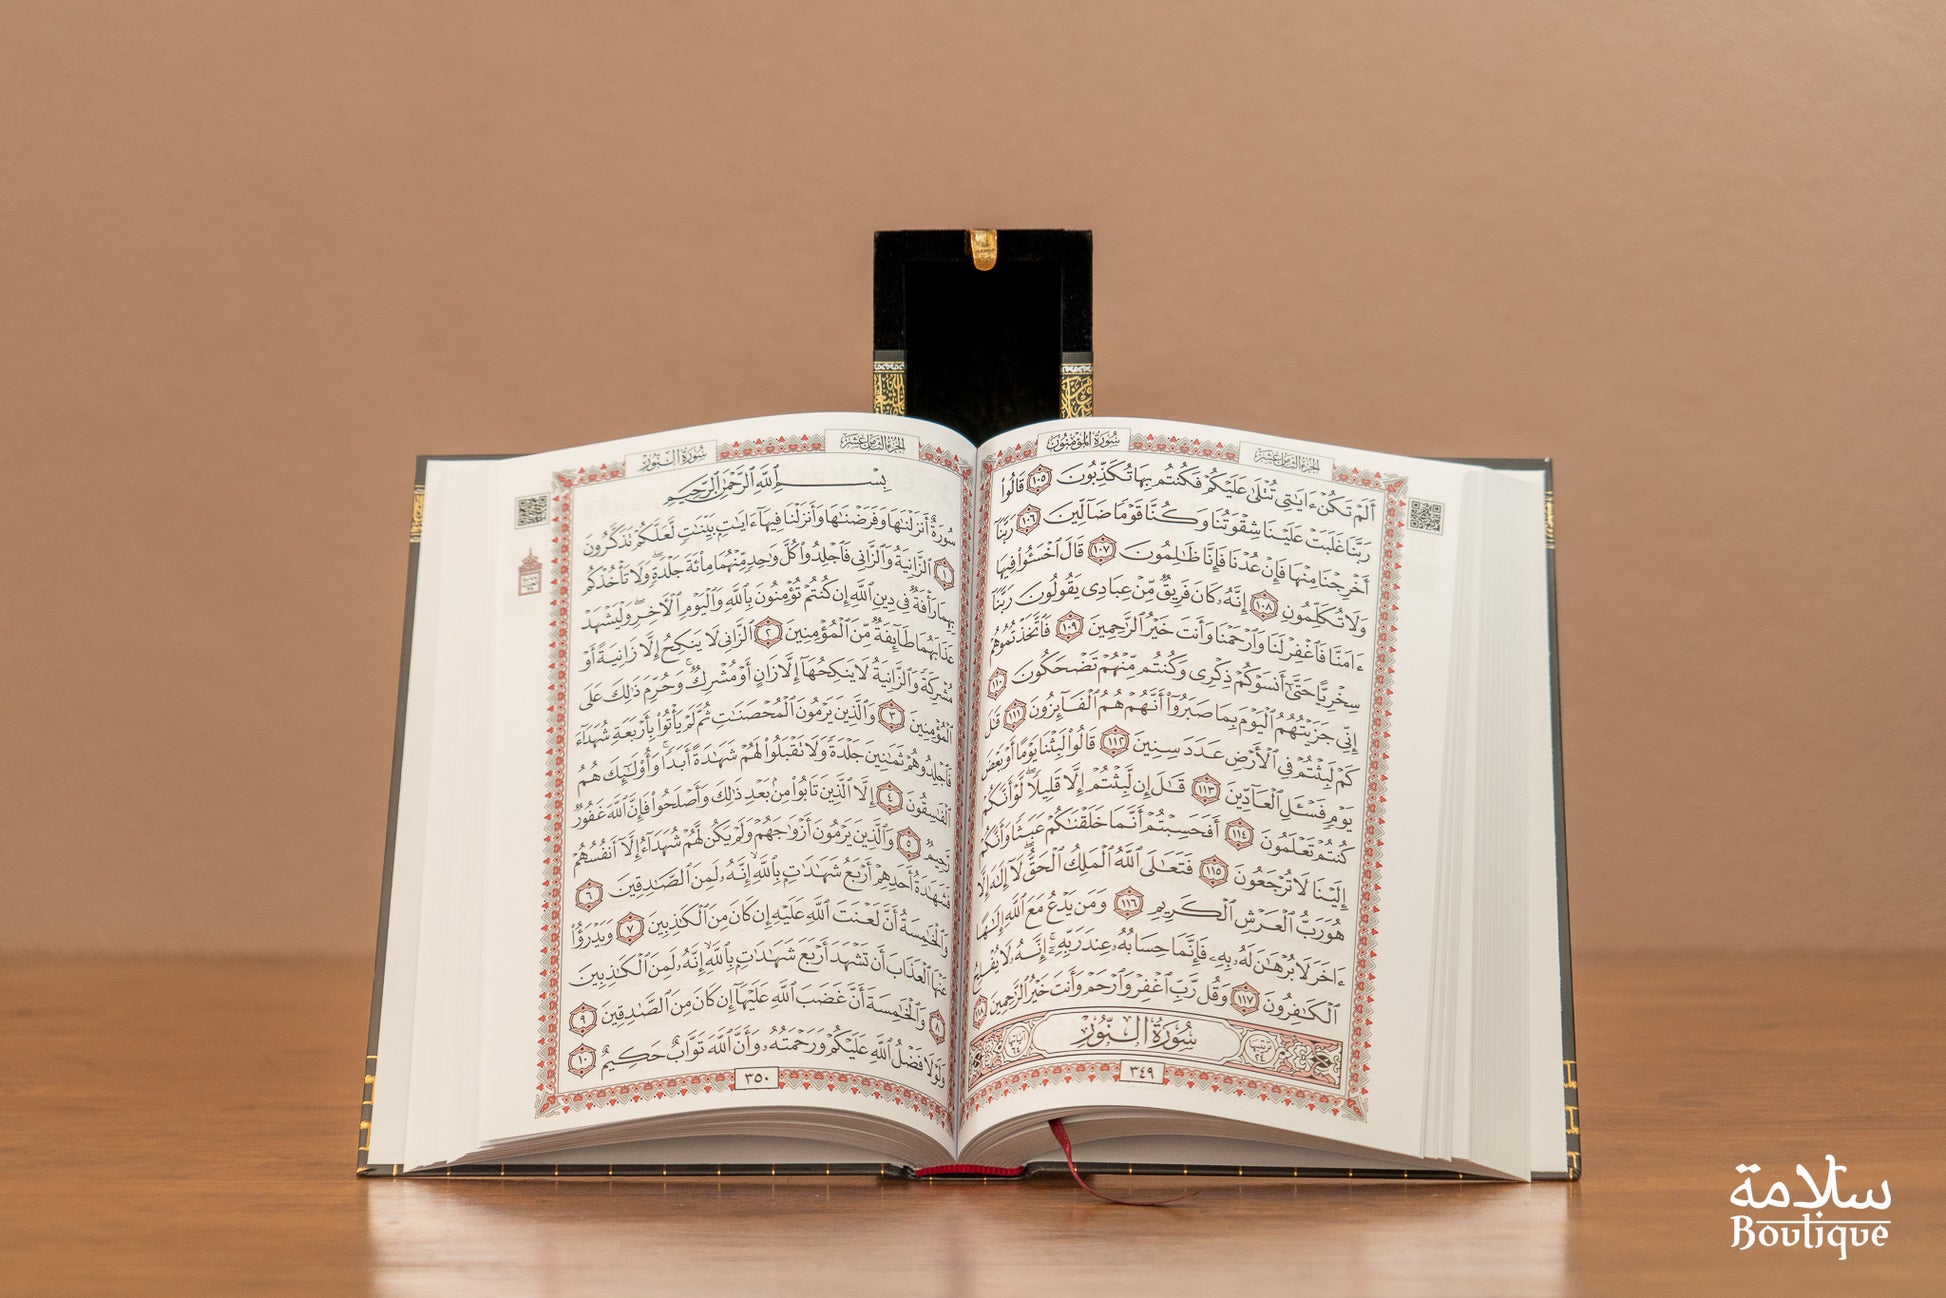 سُورَةُ المُؤْمِنُون
الجُزءُ الثَّامِنَ عَشَرَ
أَلَمْ تَكُنْ ءَايَٰتِى تُتْلَىٰ عَلَيْكُمْ فَكُنتُم بِهَا تُكَذِّبُونَ ١٠٥ قَالُوا۟
رَبَّنَا غَلَبَتْ عَلَيْنَا شِقْوَتُنَا وَكُنَّا قَوْمًا ضَآلِّينَ ١٠٦ رَبَّنَآ
أَخْرِجْنَا مِنْهَا فَإِنْ عُدْنَا فَإِنَّا ظَٰلِمُونَ ١٠٧ قَالَ ٱخْسَـُٔوا۟ فِيهَا
وَلَا تُكَلِّمُونِ ١٠٨ إِنَّهُۥ كَانَ فَرِيقٌ مِّنْ عِبَادِى يَقُولُونَ رَبَّنَآ
ءَامَنَّا فَٱغْفِرْ لَنَا وَٱرْحَمْنَا وَأَنتَ خَيْرُ ٱلرَّٰحِمِينَ ١٠٩ فَٱتَّخَذْتُمُوهُمْ
سِخْرِيًّا حَتَّىٰٓ أَنسَوْكُمْ ذِكْرِى وَكُنتُم مِّنْهُمْ تَضْحَكُونَ ١١٠
إِنِّى جَزَيْتُهُمُ ٱلْيَوْمَ بِمَا صَبَرُوٓا۟ أَنَّهُمْ هُمُ ٱلْفَآئِزُونَ ١١١ قَٰلَ
كَمْ لَبِثْتُمْ فِى ٱلْأَرْضِ عَدَدَ سِنِينَ ١١٢ قَالُوا۟ لَبِثْنَا يَوْمًا أَوْ بَعْضَ
يَوْمٍ فَسْـَٔلِ ٱلْعَآدِّينَ ١١٣ قَٰلَ إِن لَّبِثْتُمْ إِلَّا قَلِيلًا لَّوْ أَنَّكُمْ
كُنتُمْ تَعْلَمُونَ ١١٤ أَفَحَسِبْتُمْ أَنَّمَا خَلَقْنَٰكُمْ عَبَثًا وَأَنَّكُمْ
إِلَيْنَا لَا تُرْجَعُونَ ١١٥ فَتَعَٰلَى ٱللَّهُ ٱلْمَلِكُ ٱلْحَقُّ لَآ إِلَٰهَ إِلَّا
هُوَ رَبُّ ٱلْعَرْشِ ٱلْكَرِيمِ ١١٦ وَمَن يَدْعُ مَعَ ٱللَّهِ إِلَٰهًا
ءَاخَرَ لَا بُرْهَٰنَ لَهُۥ بِهِۦ فَإِنَّمَا حِسَابُهُۥ عِندَ رَبِّهِۦٓ إِنَّهُۥ لَا يُفْلِحُ
ٱلْكَٰفِرُونَ ١١٧ وَقُل رَّبِّ ٱغْفِرْ وَٱرْحَمْ وَأَنتَ خَيْرُ ٱلرَّٰحِمِينَ ١١٨
سُورَةُ النُّورِ
٣٤٩
الجُزءُ الثَّامِنَ عَشَرَ
سُورَةُ النُّور
بِسْمِ ٱللَّهِ ٱلرَّحْمَٰنِ ٱلرَّحِيمِ
سُورَةٌ أَنزَلْنَٰهَا وَفَرَضْنَٰهَا وَأَنزَلْنَا فِيهَآ ءَايَٰتٍۭ بَيِّنَٰتٍ لَّعَلَّكُمْ تَذَكَّرُونَ
١ ٱلزَّانِيَةُ وَٱلزَّانِى فَٱجْلِدُوا۟ كُلَّ وَٰحِدٍ مِّنْهُمَا مِا۟ئَةَ جَلْدَةٍ وَلَا تَأْخُذْكُم
بِهِمَا رَأْفَةٌ فِى دِينِ ٱللَّهِ إِن كُنتُمْ تُؤْمِنُونَ بِٱللَّهِ وَٱلْيَوْمِ ٱلْءَاخِرِ وَلْيَشْهَدْ
عَذَابَهُمَا طَآئِفَةٌ مِّنَ ٱلْمُؤْمِنِينَ ٢ ٱلزَّانِى لَا يَنكِحُ إِلَّا زَانِيَةً أَوْ
مُشْرِكَةً وَٱلزَّانِيَةُ لَا يَنكِحُهَآ إِلَّا زَانٍ أَوْ مُشْرِكٌ وَحُرِّمَ ذَٰلِكَ عَلَى
ٱلْمُؤْمِنِينَ ٣ وَٱلَّذِينَ يَرْمُونَ ٱلْمُحْصَنَٰتِ ثُمَّ لَمْ يَأْتُوا۟ بِأَرْبَعَةِ شُهَدَآءَ
فَٱجْلِدُوهُمْ ثَمَٰنِينَ جَلْدَةً وَلَا تَقْبَلُوا۟ لَهُمْ شَهَٰدَةً أَبَدًا وَأُو۟لَٰٓئِكَ هُمُ
ٱلْفَٰسِقُونَ ٤ إِلَّا ٱلَّذِينَ تَابُوا۟ مِنۢ بَعْدِ ذَٰلِكَ وَأَصْلَحُوا۟ فَإِنَّ ٱللَّهَ غَفُورٌ
رَّحِيمٌ ٥ وَٱلَّذِينَ يَرْمُونَ أَزْوَٰجَهُمْ وَلَمْ يَكُن لَّهُمْ شُهَدَآءُ إِلَّآ أَنفُسُهُمْ
فَشَهَٰدَةُ أَحَدِهِمْ أَرْبَعُ شَهَٰدَٰتٍۭ بِٱللَّهِ إِنَّهُۥ لَمِنَ ٱلصَّٰدِقِينَ ٦
وَٱلْخَٰمِسَةُ أَنَّ لَعْنَتَ ٱللَّهِ عَلَيْهِ إِن كَانَ مِنَ ٱلْكَٰذِبِينَ ٧ وَيَدْرَؤُا۟
عَنْهَا ٱلْعَذَابَ أَن تَشْهَدَ أَرْبَعَ شَهَٰدَٰتٍۭ بِٱللَّهِ إِنَّهُۥ لَمِنَ ٱلْكَٰذِبِينَ
٨ وَٱلْخَٰمِسَةَ أَنَّ غَضَبَ ٱللَّهِ عَلَيْهَآ إِن كَانَ مِنَ ٱلصَّٰدِقِينَ ٩
وَلَوْلَا فَضْلُ ٱللَّهِ عَلَيْكُمْ وَرَحْمَتُهُۥ وَأَنَّ ٱللَّهَ تَوَّابٌ حَكِيمٌ ١٠
٣٥٠
سلامة
Boutique